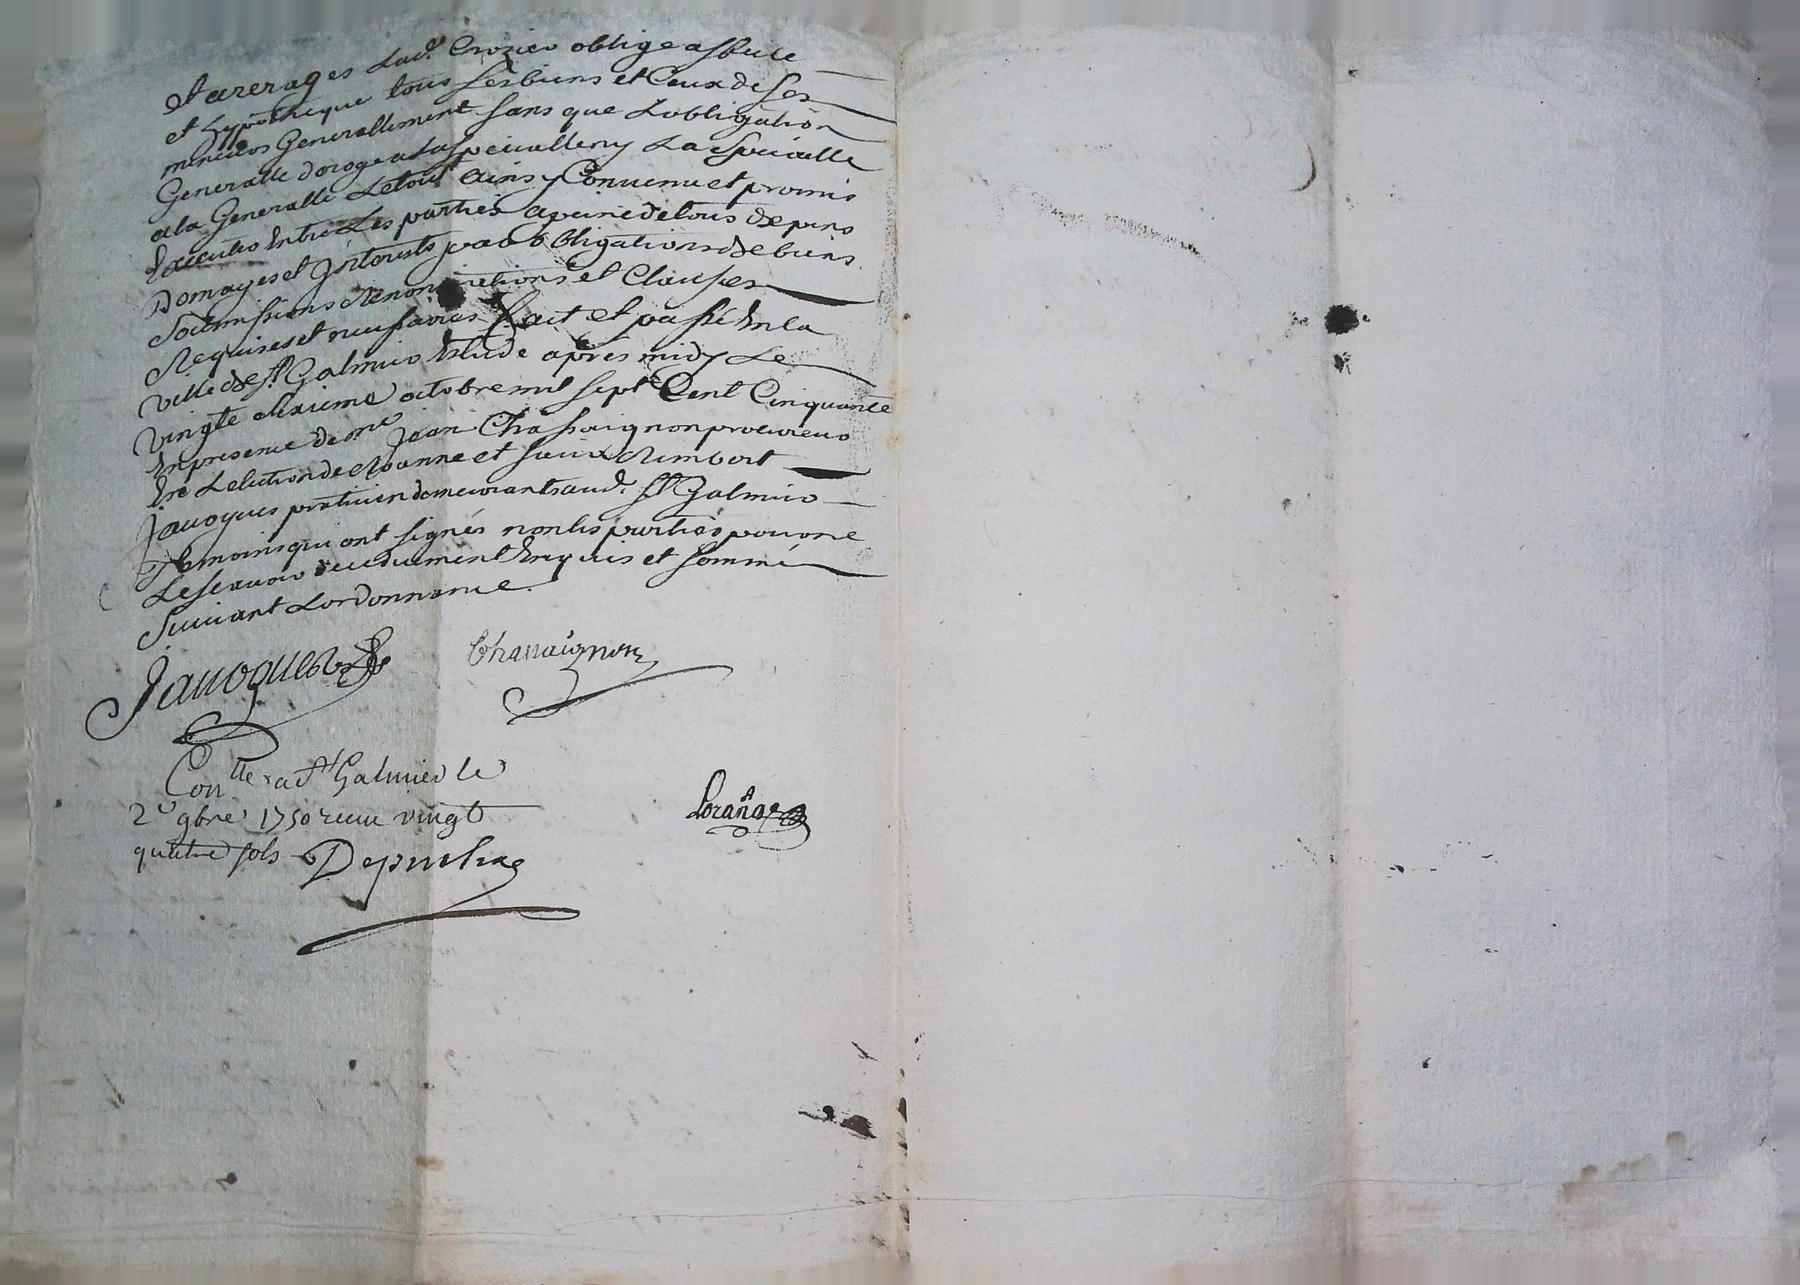 et arerages Lad. Crozier oblige affecte
et hyppotheque tous ses biens et Ceux de ses
mineurs Generallement sans que Lobligation
Generalle deroge a La specialle ny La specialle
a la Generalle Le tout ainsy Convenu et promis
Executer Entre Les parties a peine de tous depens
Domages et Interests par obligations de biens
Soumissions Renonciations et Clauses
Requises et necessaires fait et passé En la
ville de St Galmier Etude apres midy Le
vingte sixieme octobre mil sept Cent Cinquante
En presence de me Jean Chassaignon procureur
En Lelection de Roanne et sieur Rimbert
Javoques praticien demeurants aud. St Galmier
Temoins qui ont signés non les parties pour ne
Le scavoir de ce duement Enquis et sommé
Suivant Lordonnance.
Javoques Chassaignon
Conlle a St Galmier le
2e 9bre 1750 receu vingt
quatre sols